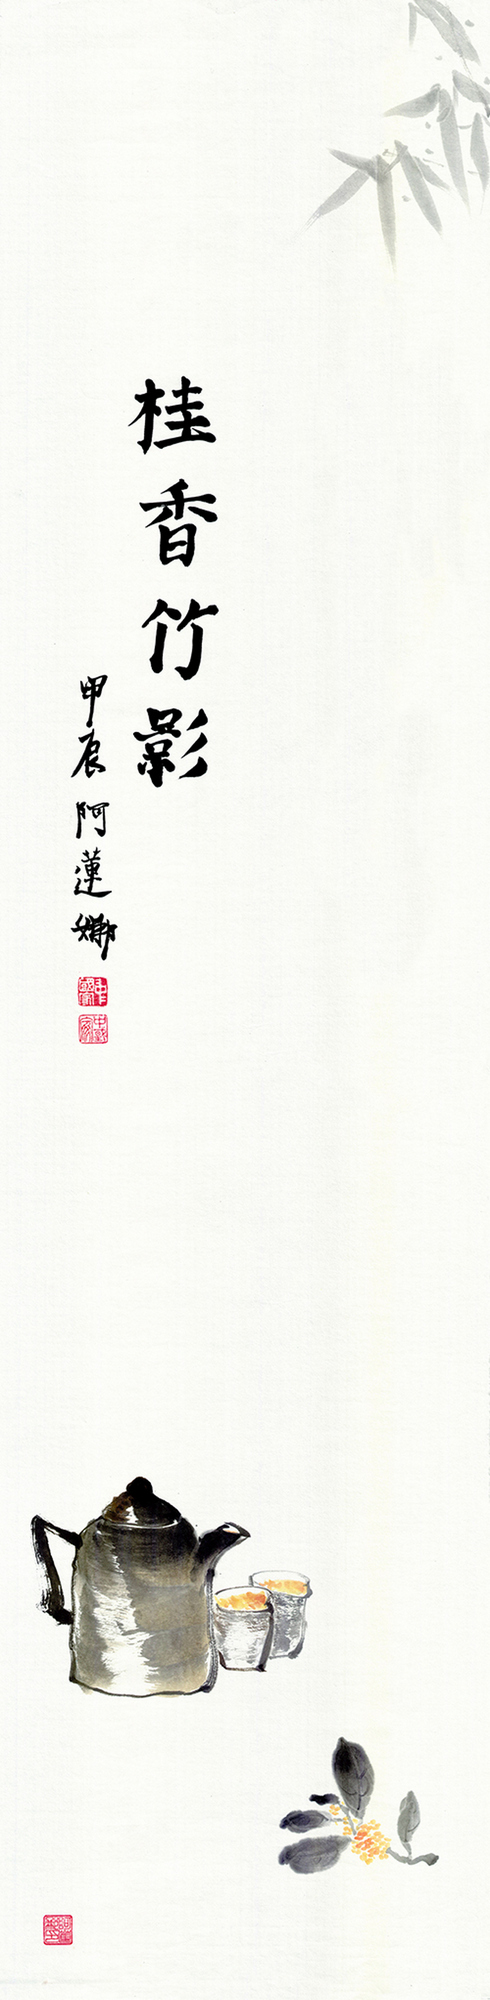 桂香竹影
甲辰阿蓮娜